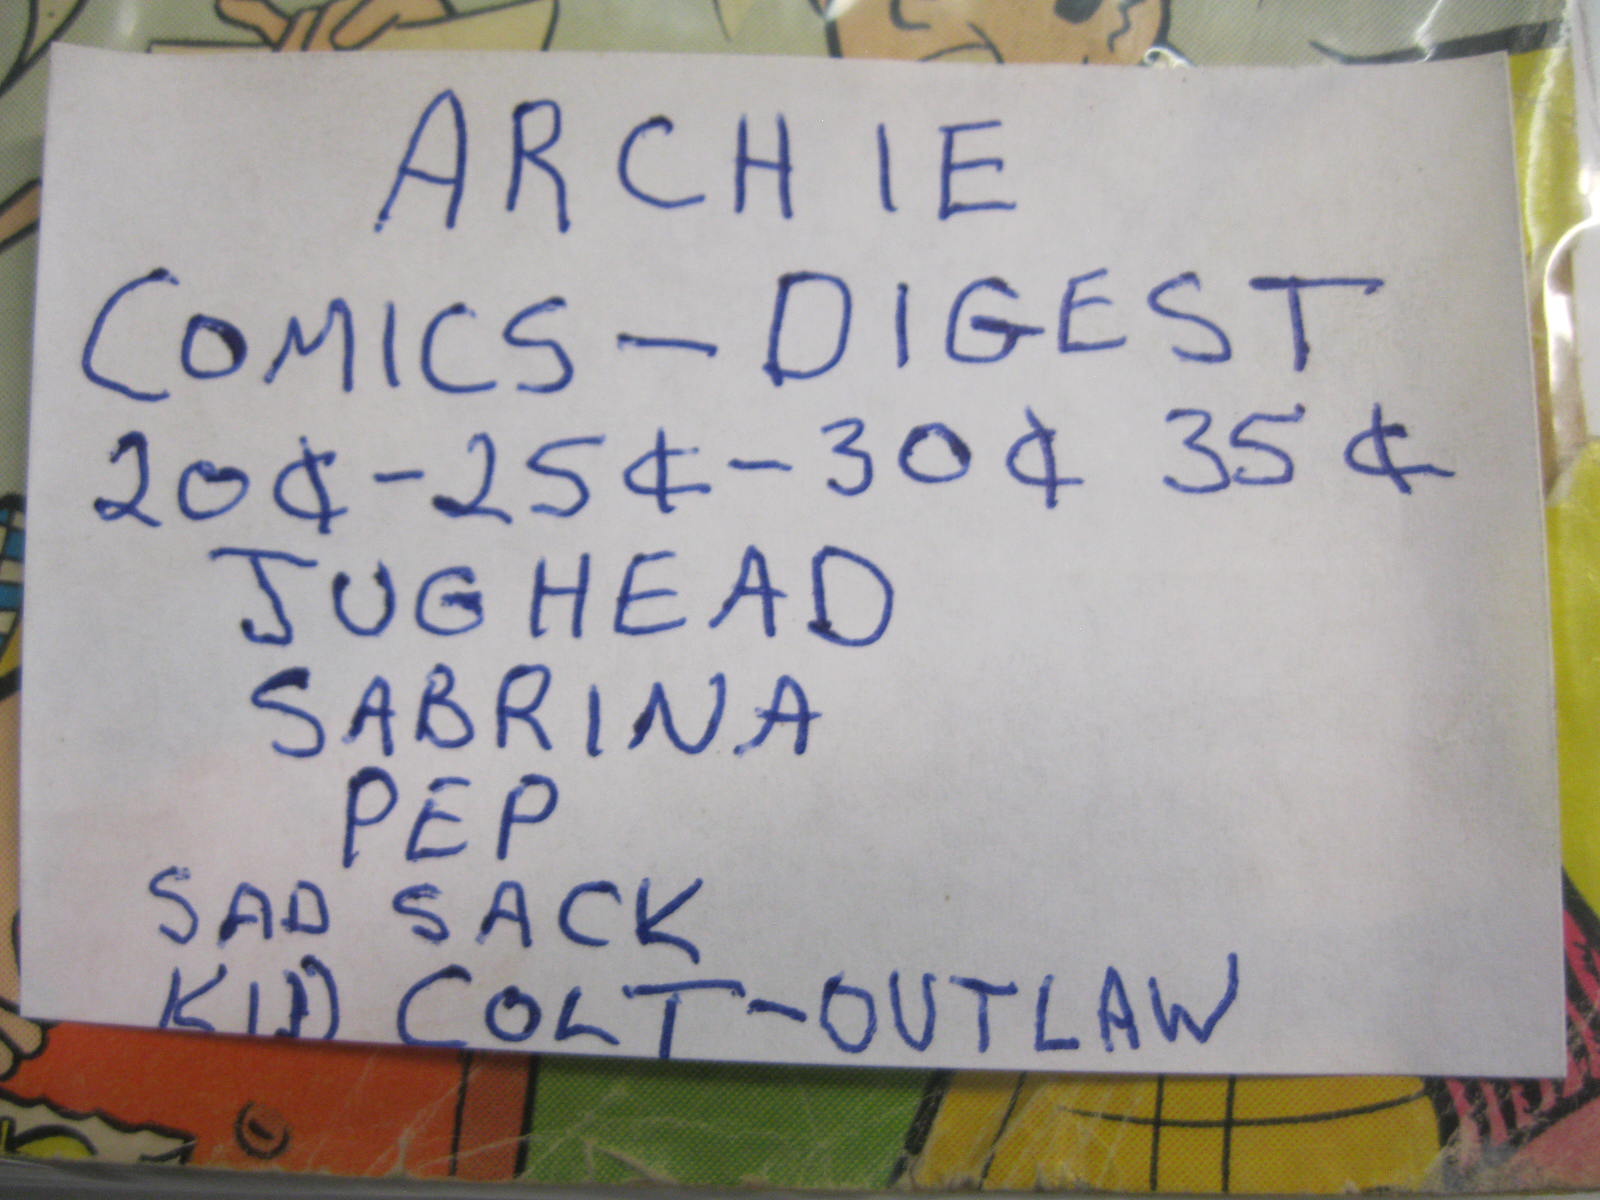 ARCHIE
COMICS - DIGEST
20¢-25¢-30¢ 35¢
JUGHEAD
SABRINA
PEP
SAD SACK
KID COLT-OUTLAW